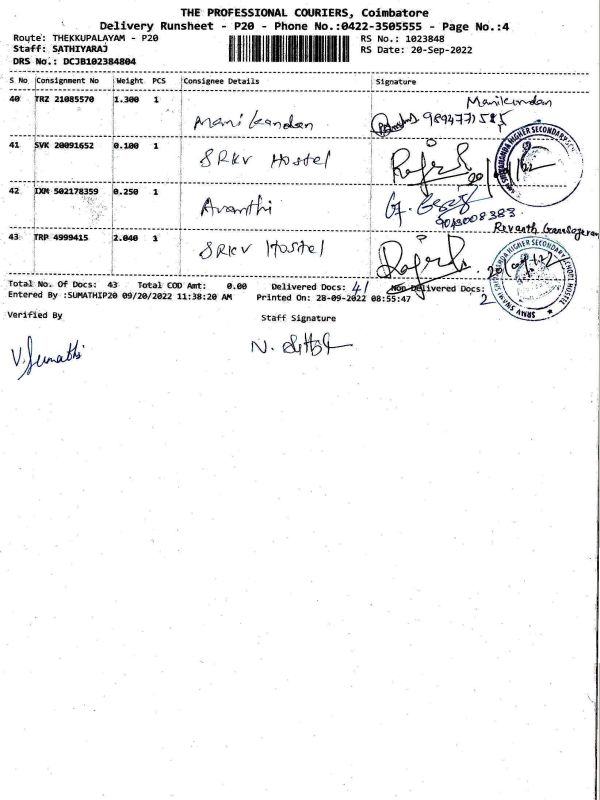 THE PROFESSIONAL COURIERS, Coimbatore
Delivery Runsheet - P20 - Phone No.:0422-3505555 - Page No.:4
Route: THEKKUPALAYAM - P20
RS No.: 1023848
Staff: SATHIYARAJ
RS Date: 20-Sep-2022
DRS No.: DCJB102384804
S No Consignment No Weight PCS Consignee Details Signature
40 TRZ 21085570 1.300 1 Manikandan Manikandan
9894771585
41 SVK 20091652 0.100 1 SRKV Hostel
42 IXM 502178359 0.250 1 Avanthi
9043008383
43 TRP 4999415 2.040 1 SRKV Hostel
Total No. Of Docs: 43 Total COD Amt: 0.00 Delivered Docs: 41 Non Delivered Docs: 2
Entered By :SUMATHIP20 09/20/2022 11:38:20 AM Printed On: 28-09-2022 08:55:47
Verified By
Staff Signature
V. Sumathi